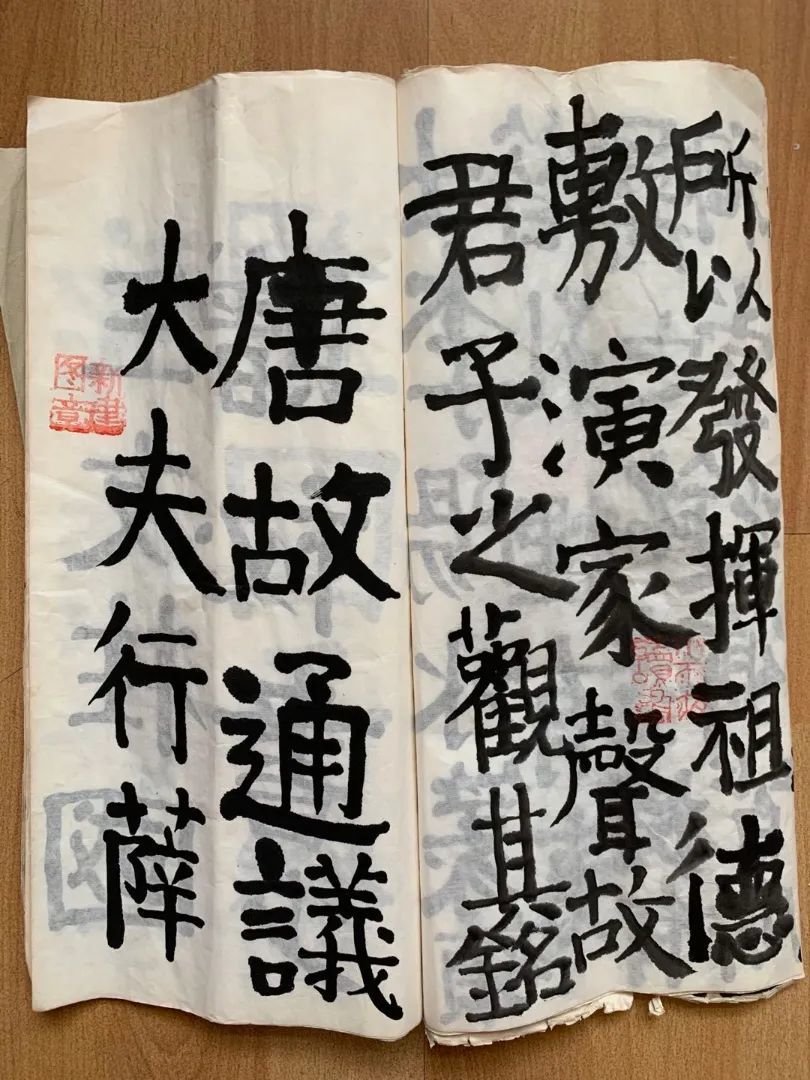 所以發揮祖德
敷演家聲故
君子之觀其銘
唐故通議
大夫行薛
新建
图章